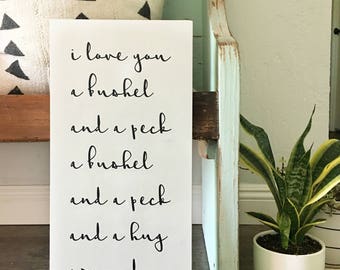 i love you
a bushel
and a peck
a bushel
and a peck
and a hug